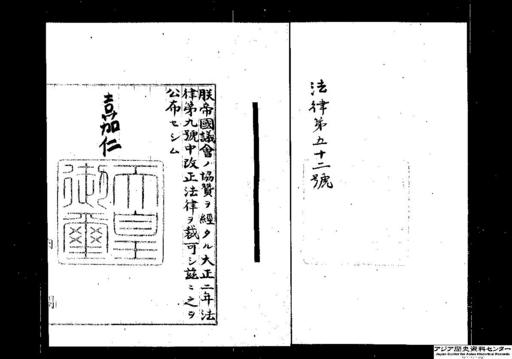 法律第五十二號
朕帝國議會ノ協贊ヲ經タル大正二年法
律第九號中改正法律ヲ裁可シ茲ニ之ヲ
公布セシム
嘉仁
天皇
御璽
アジア歴史資料センター
Japan Center for Asian Historical Records